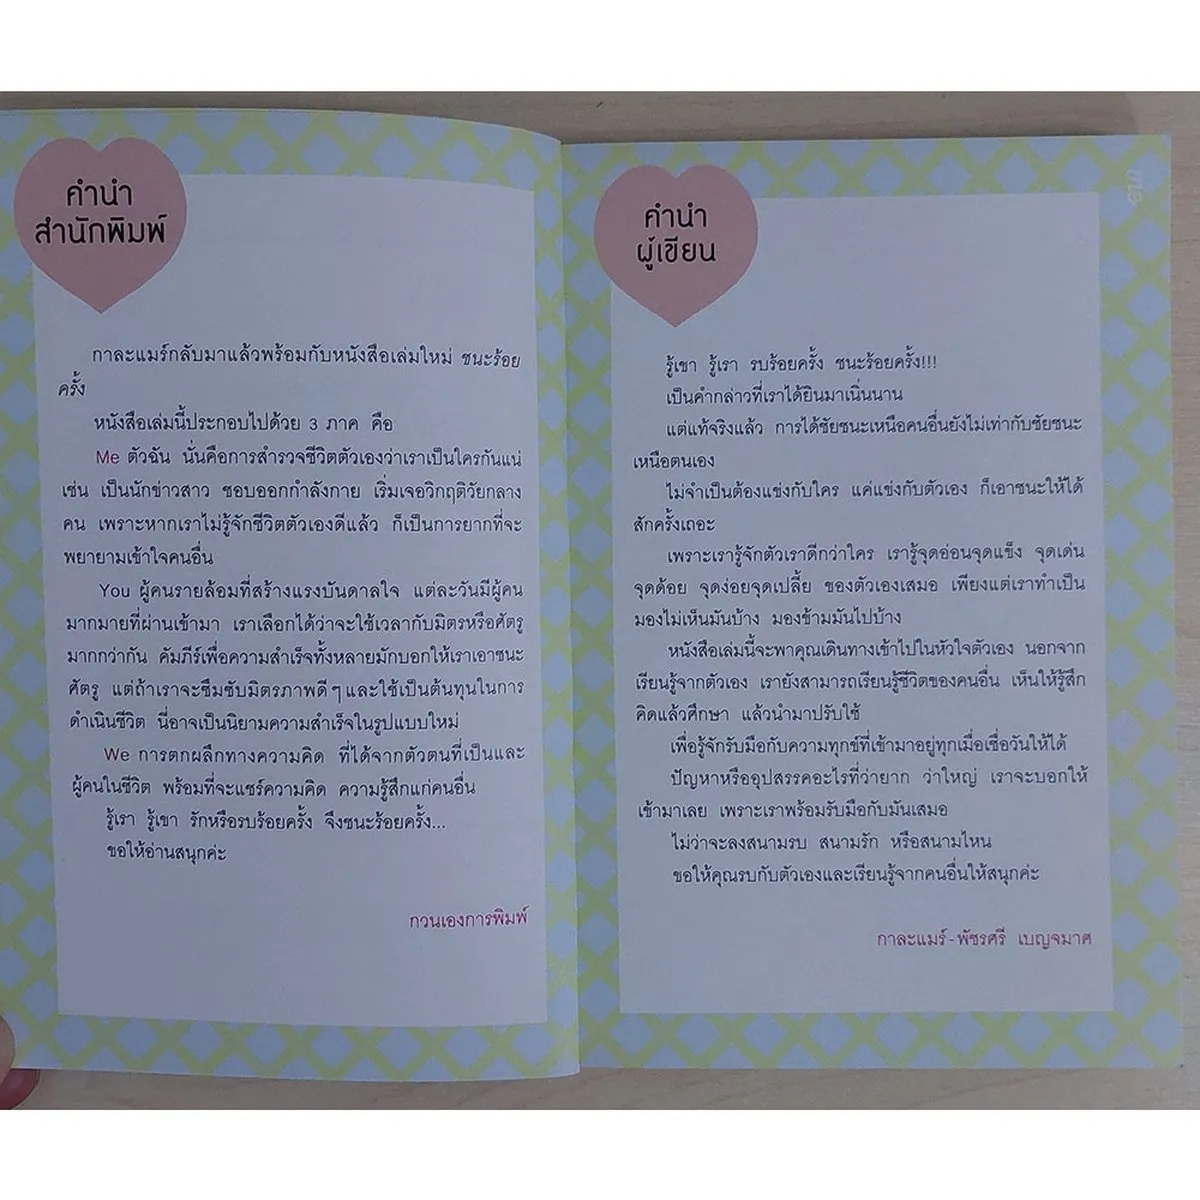 คำนำ
สำนักพิมพ์
กาละแมร์กลับมาแล้วพร้อมกับหนังสือเล่มใหม่ ชนะร้อย
ครั้ง
หนังสือเล่มนี้ประกอบไปด้วย 3 ภาค คือ
Me ตัวฉัน นั่นคือการสำรวจชีวิตตัวเองว่าเราเป็นใครกันแน่
เช่น เป็นนักข่าวสาว ชอบออกกำลังกาย เริ่มเจอวิกฤติวัยกลาง
คน เพราะหากเราไม่รู้จักชีวิตตัวเองดีแล้ว ก็เป็นการยากที่จะ
พยายามเข้าใจคนอื่น
You ผู้คนรายล้อมที่สร้างแรงบันดาลใจ แต่ละวันมีผู้คน
มากมายที่ผ่านเข้ามา เราเลือกได้ว่าจะใช้เวลากับมิตรหรือศัตรู
มากกว่ากัน คัมภีร์เพื่อความสำเร็จทั้งหลายมักบอกให้เราเอาชนะ
ศัตรู แต่ถ้าเราจะซึมซับมิตรภาพดีๆ และใช้เป็นต้นทุนในการ
ดำเนินชีวิต นี่อาจเป็นนิยามความสำเร็จในรูปแบบใหม่
We การตกผลึกทางความคิด ที่ได้จากตัวตนที่เป็นและ
ผู้คนในชีวิต พร้อมที่จะแชร์ความคิด ความรู้สึกแก่คนอื่น
รู้เรา รู้เขา รักหรือรบร้อยครั้ง จึงชนะร้อยครั้ง...
ขอให้อ่านสนุกค่ะ
กวนเองการพิมพ์
คำนำ
ผู้เขียน
รู้เขา รู้เรา รบร้อยครั้ง ชนะร้อยครั้ง!!!
เป็นคำกล่าวที่เราได้ยินมาเนิ่นนาน
แต่แท้จริงแล้ว การได้ชัยชนะเหนือคนอื่นยังไม่เท่ากับชัยชนะ
เหนือตนเอง
ไม่จำเป็นต้องแข่งกับใคร แค่แข่งกับตัวเอง ก็เอาชนะให้ได้
สักครั้งเถอะ
เพราะเรารู้จักตัวเราดีกว่าใคร เรารู้จุดอ่อนจุดแข็ง จุดเด่น
จุดด้อย จุดง่อยจุดเปลี้ย ของตัวเองเสมอ เพียงแต่เราทำเป็น
มองไม่เห็นมันบ้าง มองข้ามมันไปบ้าง
หนังสือเล่มนี้จะพาคุณเดินทางเข้าไปในหัวใจตัวเอง นอกจาก
เรียนรู้จากตัวเอง เรายังสามารถเรียนรู้ชีวิตของคนอื่น เห็นให้รู้สึก
คิดแล้วศึกษา แล้วนำมาปรับใช้
เพื่อรู้จักรับมือกับความทุกข์ที่เข้ามาอยู่ทุกเมื่อเชื่อวันให้ได้
ปัญหาหรืออุปสรรคอะไรที่ว่ายาก ว่าใหญ่ เราจะบอกให้
เข้ามาเลย เพราะเราพร้อมรับมือกับมันเสมอ
ไม่ว่าจะลงสนามรบ สนามรัก หรือสนามไหน
ขอให้คุณรบกับตัวเองและเรียนรู้จากคนอื่นให้สนุกค่ะ
กาละแมร์-พัชรศรี เบญจมาศ
me